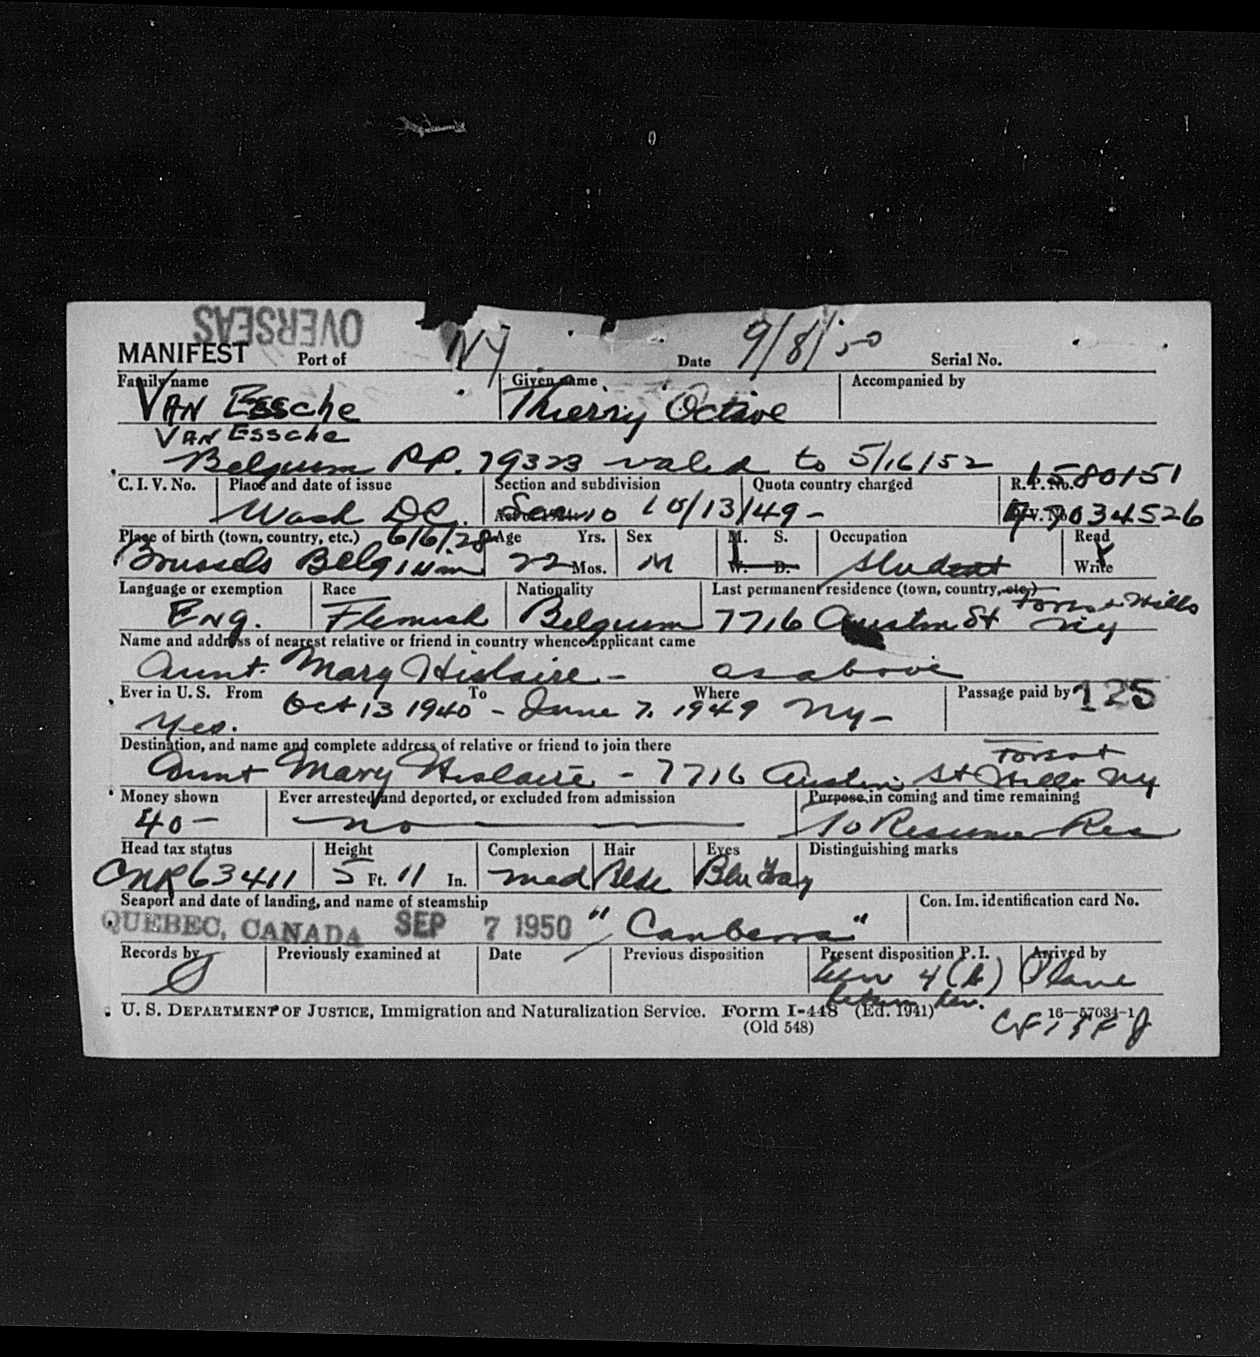 OVERSEAS
MANIFEST Port of NY Date 9/8/50 Serial No.
Family name Given name Accompanied by
VAN Essche Thierry Octave
VAN Essche
Belgium P.P. 79323 valid to 5/16/52
C. I. V. No. Place and date of issue Section and subdivision Quota country charged R. P. No. 1580151
Wash DC. Sec 10 10/13/49 - 7034526
Place of birth (town, country, etc.) 6/6/28 Age Yrs. Sex M. S. Occupation Read
Brussels Belgium 22 Mos. M W. D. Student Write
Language or exemption Race Nationality Last permanent residence (town, country, etc.)
Eng. Flemish Belgium 7716 Austin St Forest Hills NY
Name and address of nearest relative or friend in country whence applicant came
Aunt Mary Hislaire - as above
Ever in U. S. From To Where Passage paid by 125
Yes. Oct 13 1940 - June 7, 1949 NY -
Destination, and name and complete address of relative or friend to join there
Aunt Mary Hislaire - 7716 Austin St Forest Hills NY
Money shown Ever arrested and deported, or excluded from admission Purpose in coming and time remaining
40 - no To Resume Res
Head tax status Height Complexion Hair Eyes Distinguishing marks
CNR 63411 5 Ft. 11 In. med Blde Blu Gray
Seaport and date of landing, and name of steamship Con. Im. identification card No.
QUEBEC, CANADA SEP 7 1950 "Canberra"
Records by Previously examined at Date Previous disposition Present disposition P. I. Arrived by
4 (b) Plane
U. S. DEPARTMENT OF JUSTICE, Immigration and Naturalization Service. Form I-448 (Ed. 1941) 16—57034-1
(Old 548)